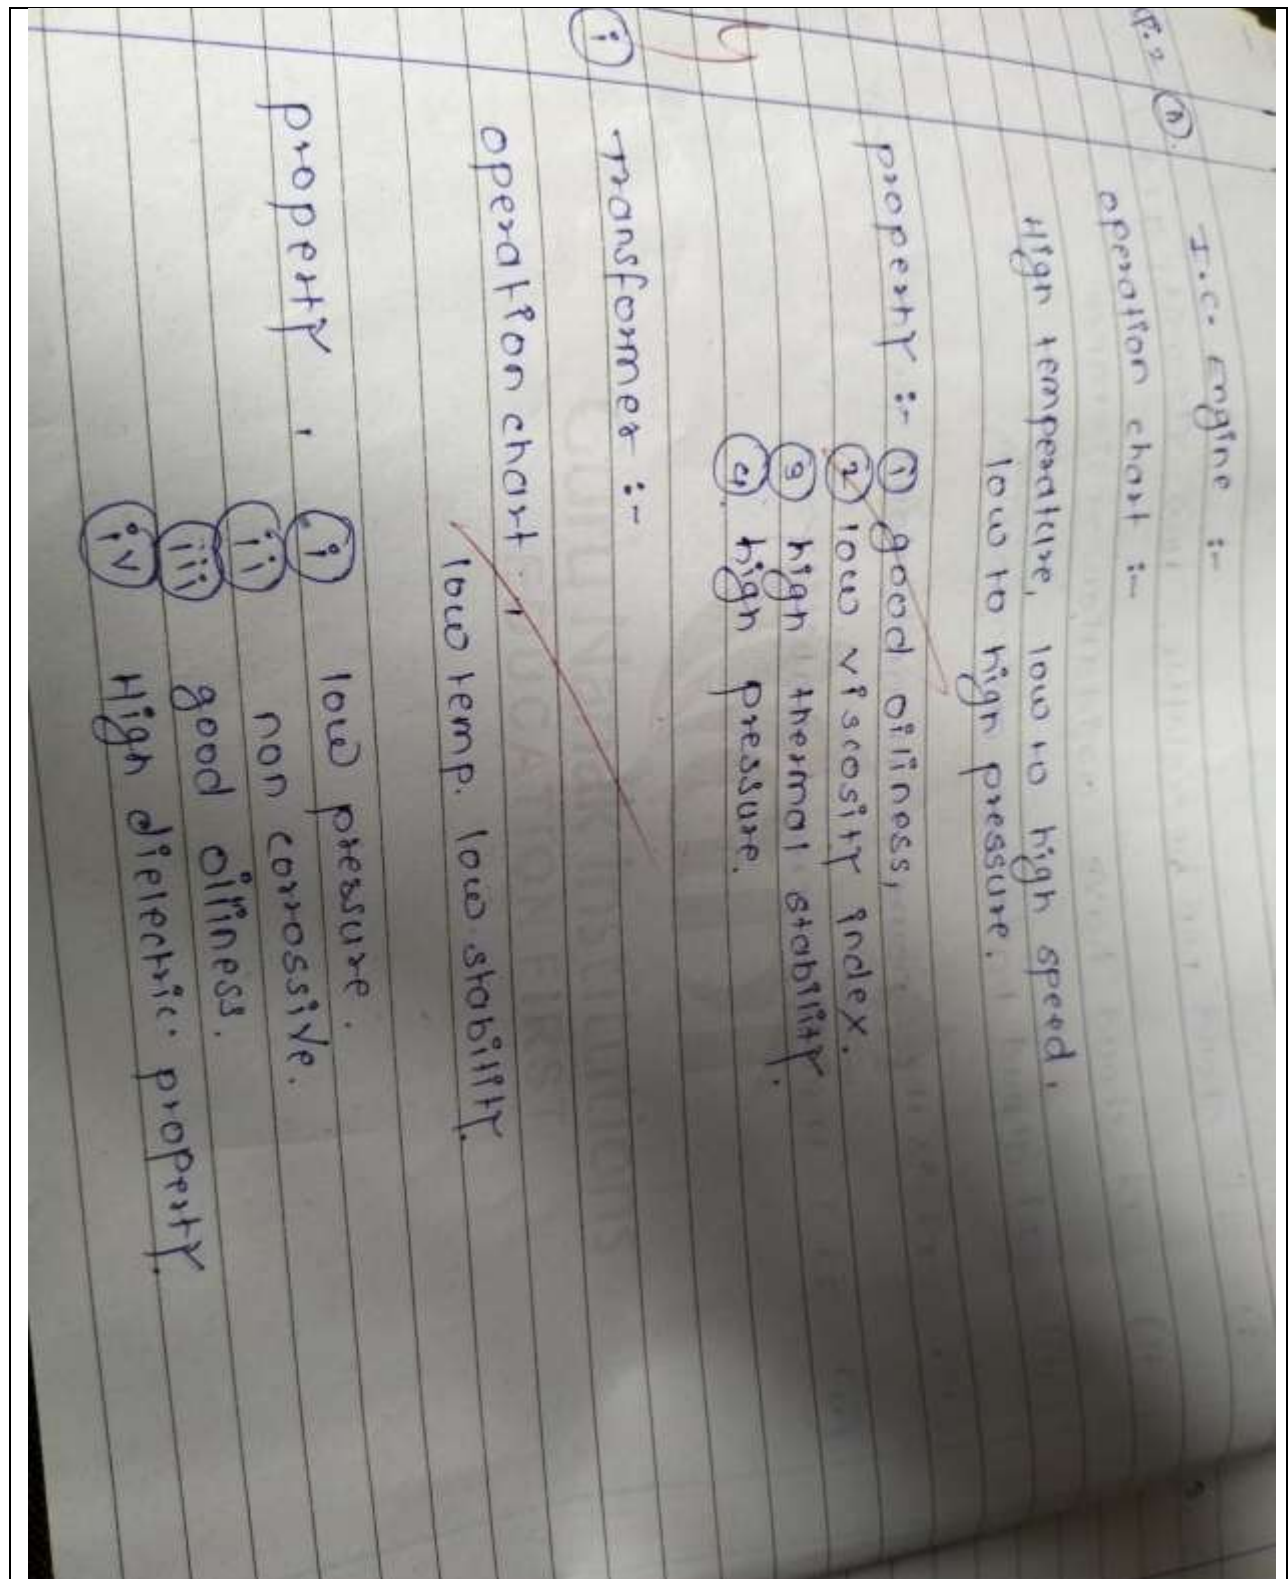 Q.2 (A). I.C. engine :-
operation chart :-
High temperature, low to high speed,
low to high pressure.
property :- (1) good oiliness,
(2) low viscosity index.
(3) high thermal stability.
(4) high pressure.
(i) Transformer :-
operation chart :-
low temp. low stability.
property , (i) low pressure.
(ii) non corrossive.
(iii) good oiliness.
(iv) High dielectric property.
Guru Nanak Institutions
EDUCATION FIRST